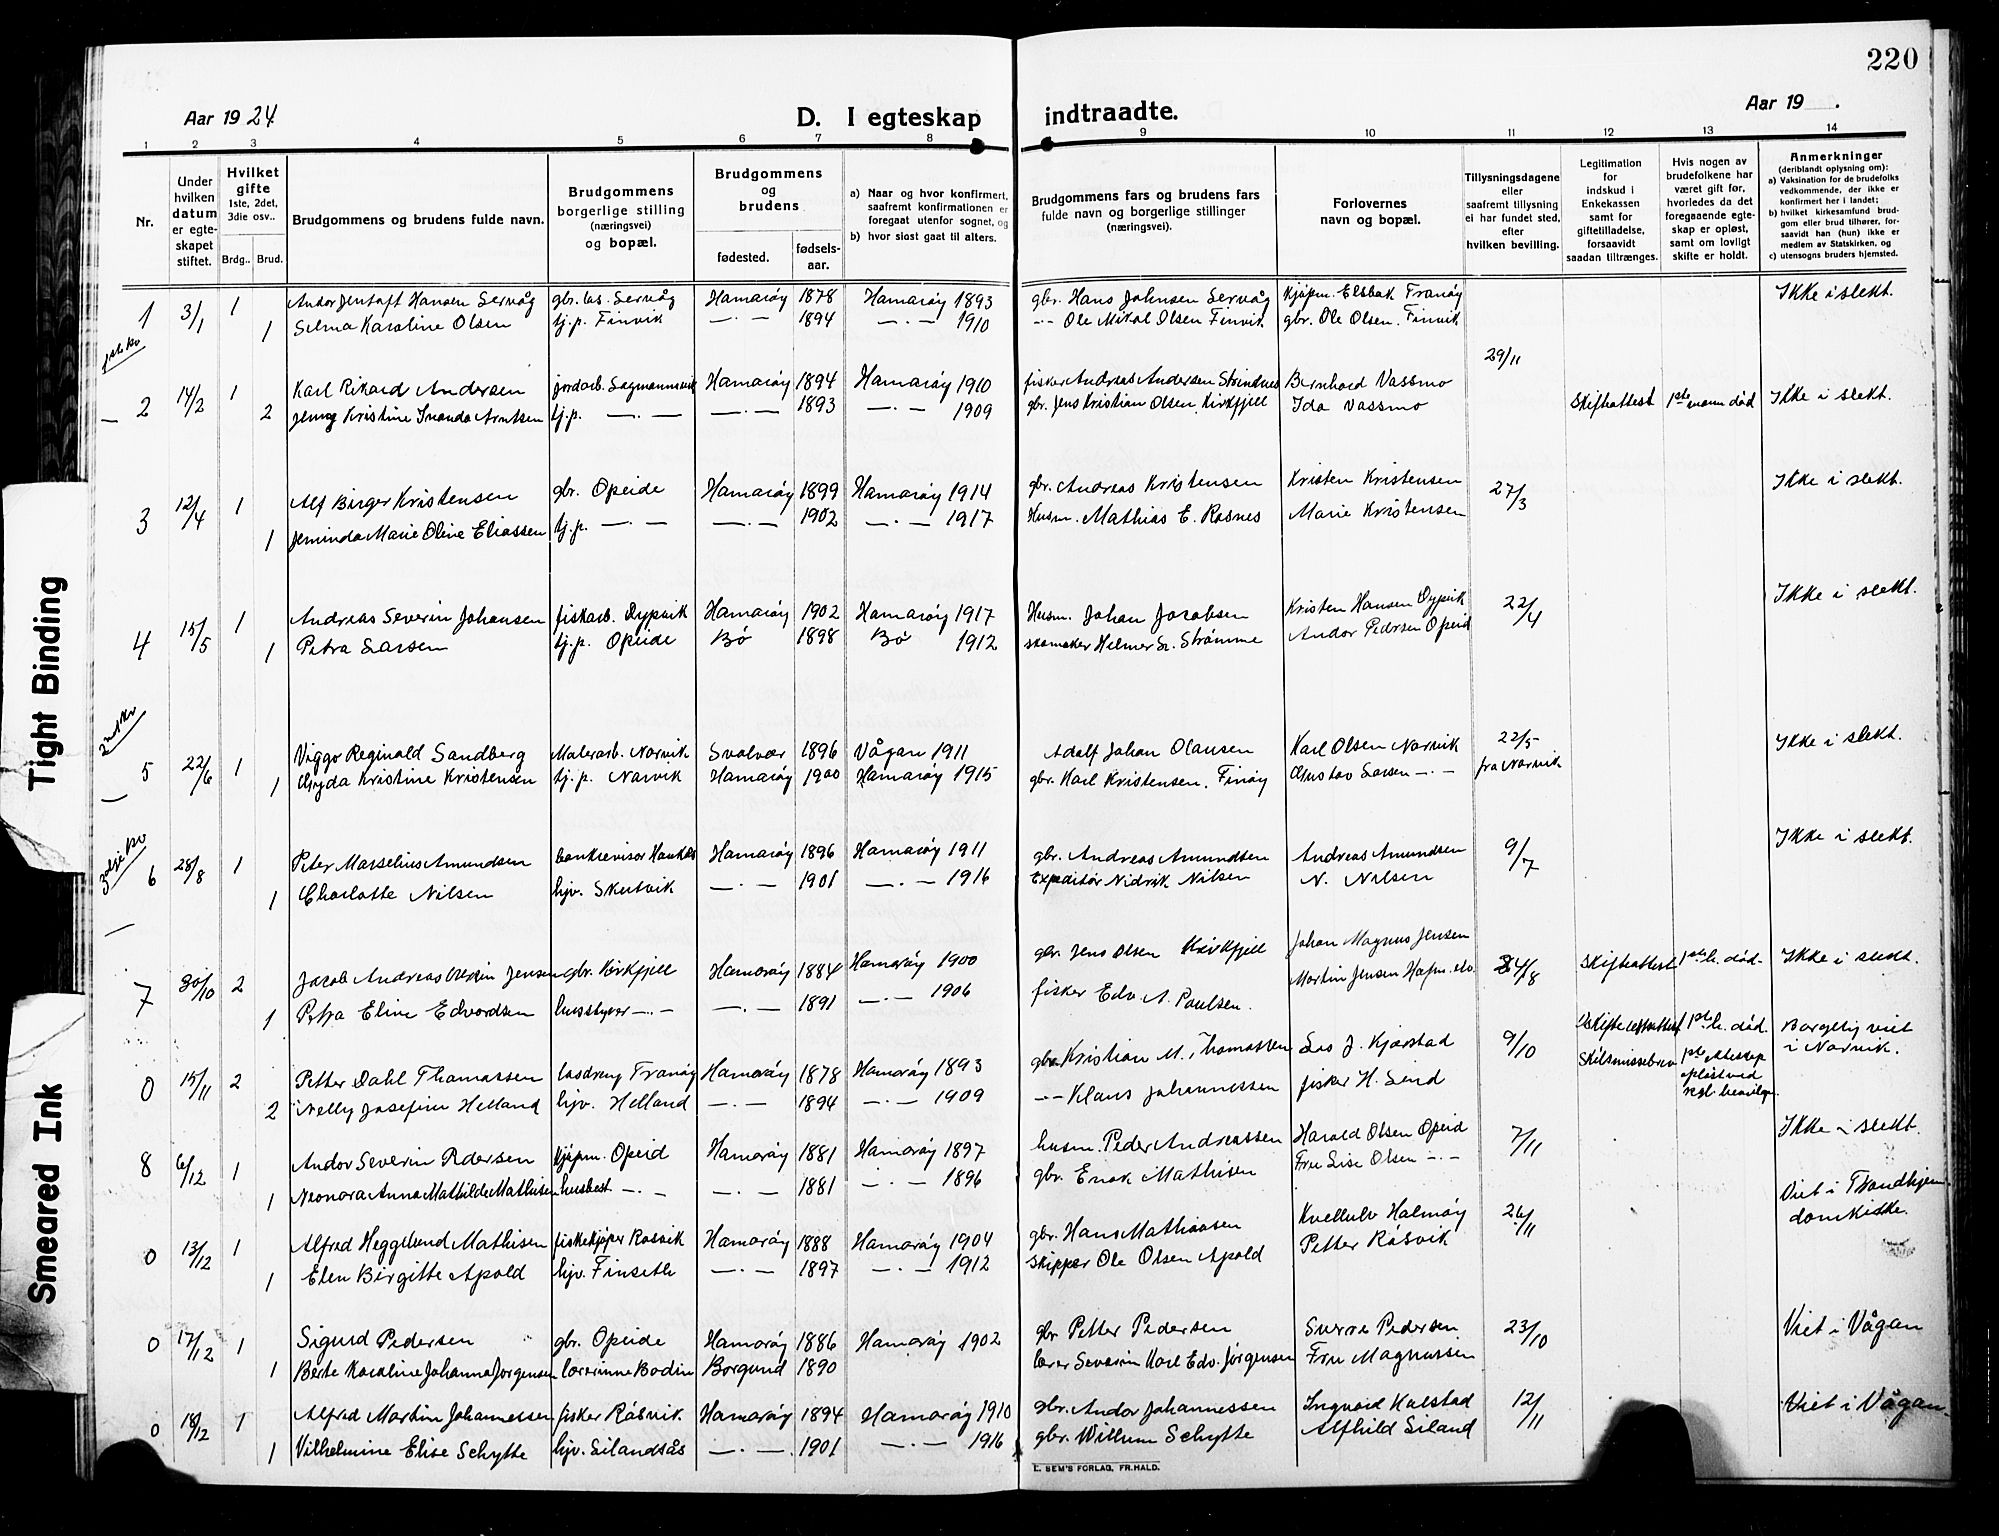 220
Aar 1924
D. I egteskap indtraadte.
Aar 19 .
1 2 3 4 5 6 7 8 9 10 11 12 13 14
Nr.
Under hvilken datum er egteskapet stiftet.
Hvilket gifte 1ste, 2det, 3die osv..
Brdg.. Brud.
Brudgommens og brudens fulde navn.
Brudgommens borgerlige stilling (næringsvei) og bopæl.
Brudgommens og brudens
fødested. fødsels-aar.
a) Naar og hvor konfirmert, saafremt konfirmationen er foregaat utenfor sognet, og
b) hvor sidst gaat til alters.
Brudgommens fars og brudens fars fulde navn og borgerlige stillinger (næringsvei).
Forlovernes navn og bopæl.
Tillysningsdagene eller saafremt tillysning ei har fundet sted, efter hvilken bevilling.
Legitimation for indskud i Enkekassen samt for giftetilladelse, forsaavidt saadan tiltrænges.
Hvis nogen av brudefolkene har været gift før, hvorledes da det foregaaende egteskap er opløst, samt om lovligt skifte er holdt.
Anmerkninger (deriblandt oplysning om): a) Vaksination for de brudefolks vedkommende, der ikke er konfirmert her i landet; b) hvilket kirkesamfund brudgom eller brud tilhører, forsaavidt han (hun) ikke er medlem av Statskirken, og c) utensogns bruders hjemsted.
1 3/1 1 Andor Jentoft Hansen Servåg gbr. les. Servåg Hamarøy 1878 Hamarøy 1893 gbr. Hans Johnsen Servåg Kjøpm. Elsbak Tranøy Ikke i slekt.
1 Selma Karoline Olsen tj.p. Finvik —.— 1894 —.— 1910 -"- Ole Mikal Olsen Finvik gbr. Ole Olsen. Finvik
1ste kv
2 14/2 1 Karl Rikard Andersen jordarb. Sagmannsvik Hamarøy 1894 Hamarøy 1910 fisker Andreas Andersen Strindnes Bernhard Vassmo 29/11
2 Jenny Kristine Inanda Arntsen tj.p. —.— —.— 1893 —.— 1909 gbr. Jens Kristian Olsen, Kirkfjell Ida Vassmo Skifteattest 1ste mann død Ikke i slekt.
3 12/4 1 Alf Birger Kristensen gbr. Opeide Hamarøy 1899 Hamarøy 1914 gbr. Andreas Kristensen Kristen Kristensen 27/3 Ikke i slekt.
1 Jeminda Marie Oline Eliassen tj.p. —.— —.— 1902 —.— 1917 Husm. Mathias E. Rosnes Marie Kristensen
4 15/5 1 Andreas Severin Johansen fiskarb. Dypvik Hamarøy 1902 Hamarøy 1917 Husm. Johan Jacobsen Kristen Hansen Dypvik 22/4 Ikke i slekt.
1 Petra Larsen tj.p. Opeide Bø 1898 Bø 1912 skomaker Helmer Lr. Strømme Andor Pedersen Opeid
2net kv
5 22/6 1 Viggo Reginald Sandberg Malerarb. Narvik Svolvær 1896 Vågan 1911 Adolf Johan Olausen Karl Olsen Narvik 22/5 Ikke i slekt.
1 Gyda Kristine Kristensen tj.p. Narvik Hamarøy 1900 Hamarøy 1915 gbr. Karl Kristensen. Finøy Gustav Larsen —.— fra Narvik
3dje kv
6 28/8 1 Peter Marselius Amundsen bankrevisor Hamarøy 1896 Hamarøy 1911 gbr. Andreas Amundsen Andreas Amundsen 9/7 Ikke i slekt.
1 Charlotte Nilsen hjv. Skutvik —.— 1901 —.— 1916 Expeditør Nidrik Nilsen N. Nilsen
7 30/10 2 Jacob Andreas Jensen gbr. Kirkfjell Hamarøy 1884 Hamarøy 1900 gbr. Jens Olsen Kirkfjell Johan Magnus Jensen 24/8 Skifteattest 1ste h. død. Ikke i slekt.
1 Petra Eline Edvardsen husstyrer —.— —.— 1891 —.— 1906 fisker Edv. A. Paulsen. Martin Jensen
0 15/11 2 Petter Dahl Thomassen Tranøy Hamarøy 1878 Hamarøy 1893 gbr. Kristian M. Thomassen Lars J. Kjærstad 9/10 1ste h. død. Borgelig viet i Narvik.
2 Nelly Josefine Helland hjv. Helland —.— 1894 —.— 1909 -"- Klaus Johannessen fisker H. Lind Skilsmissebrev 1ste ekteskap opløst ved
8 6/12 1 Andor Severin Pedersen kjøpm. Opeid Hamarøy 1881 Hamarøy 1897 husm. Peder Andreassen Harald Olsen Opeid 7/11 Ikke i slekt.
1 Neonora Anna Mathilde Mathisen husbest —.— —.— 1881 —.— 1896 gbr. Enok Mathisen Fru Lise Olsen —.—
0 13/12 1 Alfred Heggelund Mathisen fiskekjøper Røsvik Hamarøy 1888 Hamarøy 1904 gbr. Hans Mathiasen Kvellulv Halmøy 26/11 Viet i Trondhjem domkirke.
1 Elen Birgitte Apold hjv. Finseth —.— 1897 —.— 1912 skipper Ole Olsen Apold Petter Røsvik
0 17/12 1 Sigurd Pedersen gbr. Opeide Hamarøy 1886 Hamarøy 1902 gbr Petter Pedersen Sverre Pedersen 23/10 Viet i Vågan
1 Berte Karoline Johanna Jørgensen lærerinne Bodin Borgund 1890 lærer Severin Karl Edv. Jørgensen Fru Magnussen
0 18/12 1 Alfred Martin Johannessen fisker Røsvik. Hamarøy 1894 Hamarøy 1910 gbr. Andor Johannessen Ingvald Kalstad 12/11 Viet i Vågan.
1 Vilhelmine Elise Schytte hjv. Silandsås —.— 1901 —.— 1916 gbr. Willum Schytte Alfhild Siland
L. SEM'S FORLAG, FR.HALD.
Tight Binding
Smeared Ink